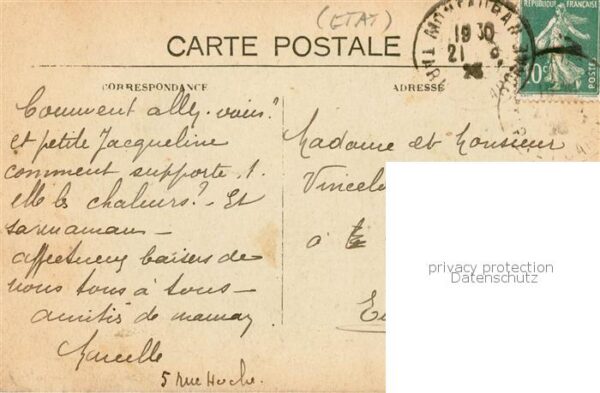 (ETAT)
CARTE POSTALE
RÉPUBLIQUE FRANÇAISE
10c
POSTES
19 30
21
CORRESPONDANCE
ADRESSE
Comment allez-vous?
et petite Jacqueline
comment supporte-t-
elle les chaleurs? - Et
sa maman -
affectueux baisers de
nous tous à tous -
amitiés de maman
Marcelle
5 rue Hoche.
Madame et Monsieur
à
privacy protection
Datenschutz